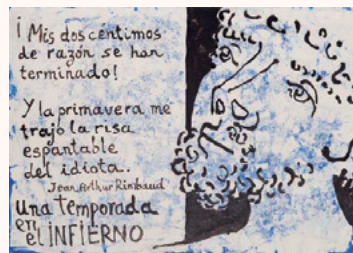 ¡ Mis dos céntimos
de razón se han
terminado!
Y la primavera me
trajo la risa
espantable
del idiota.
Jean Arthur Rimbaud
una temporada
en
el INFIERNO